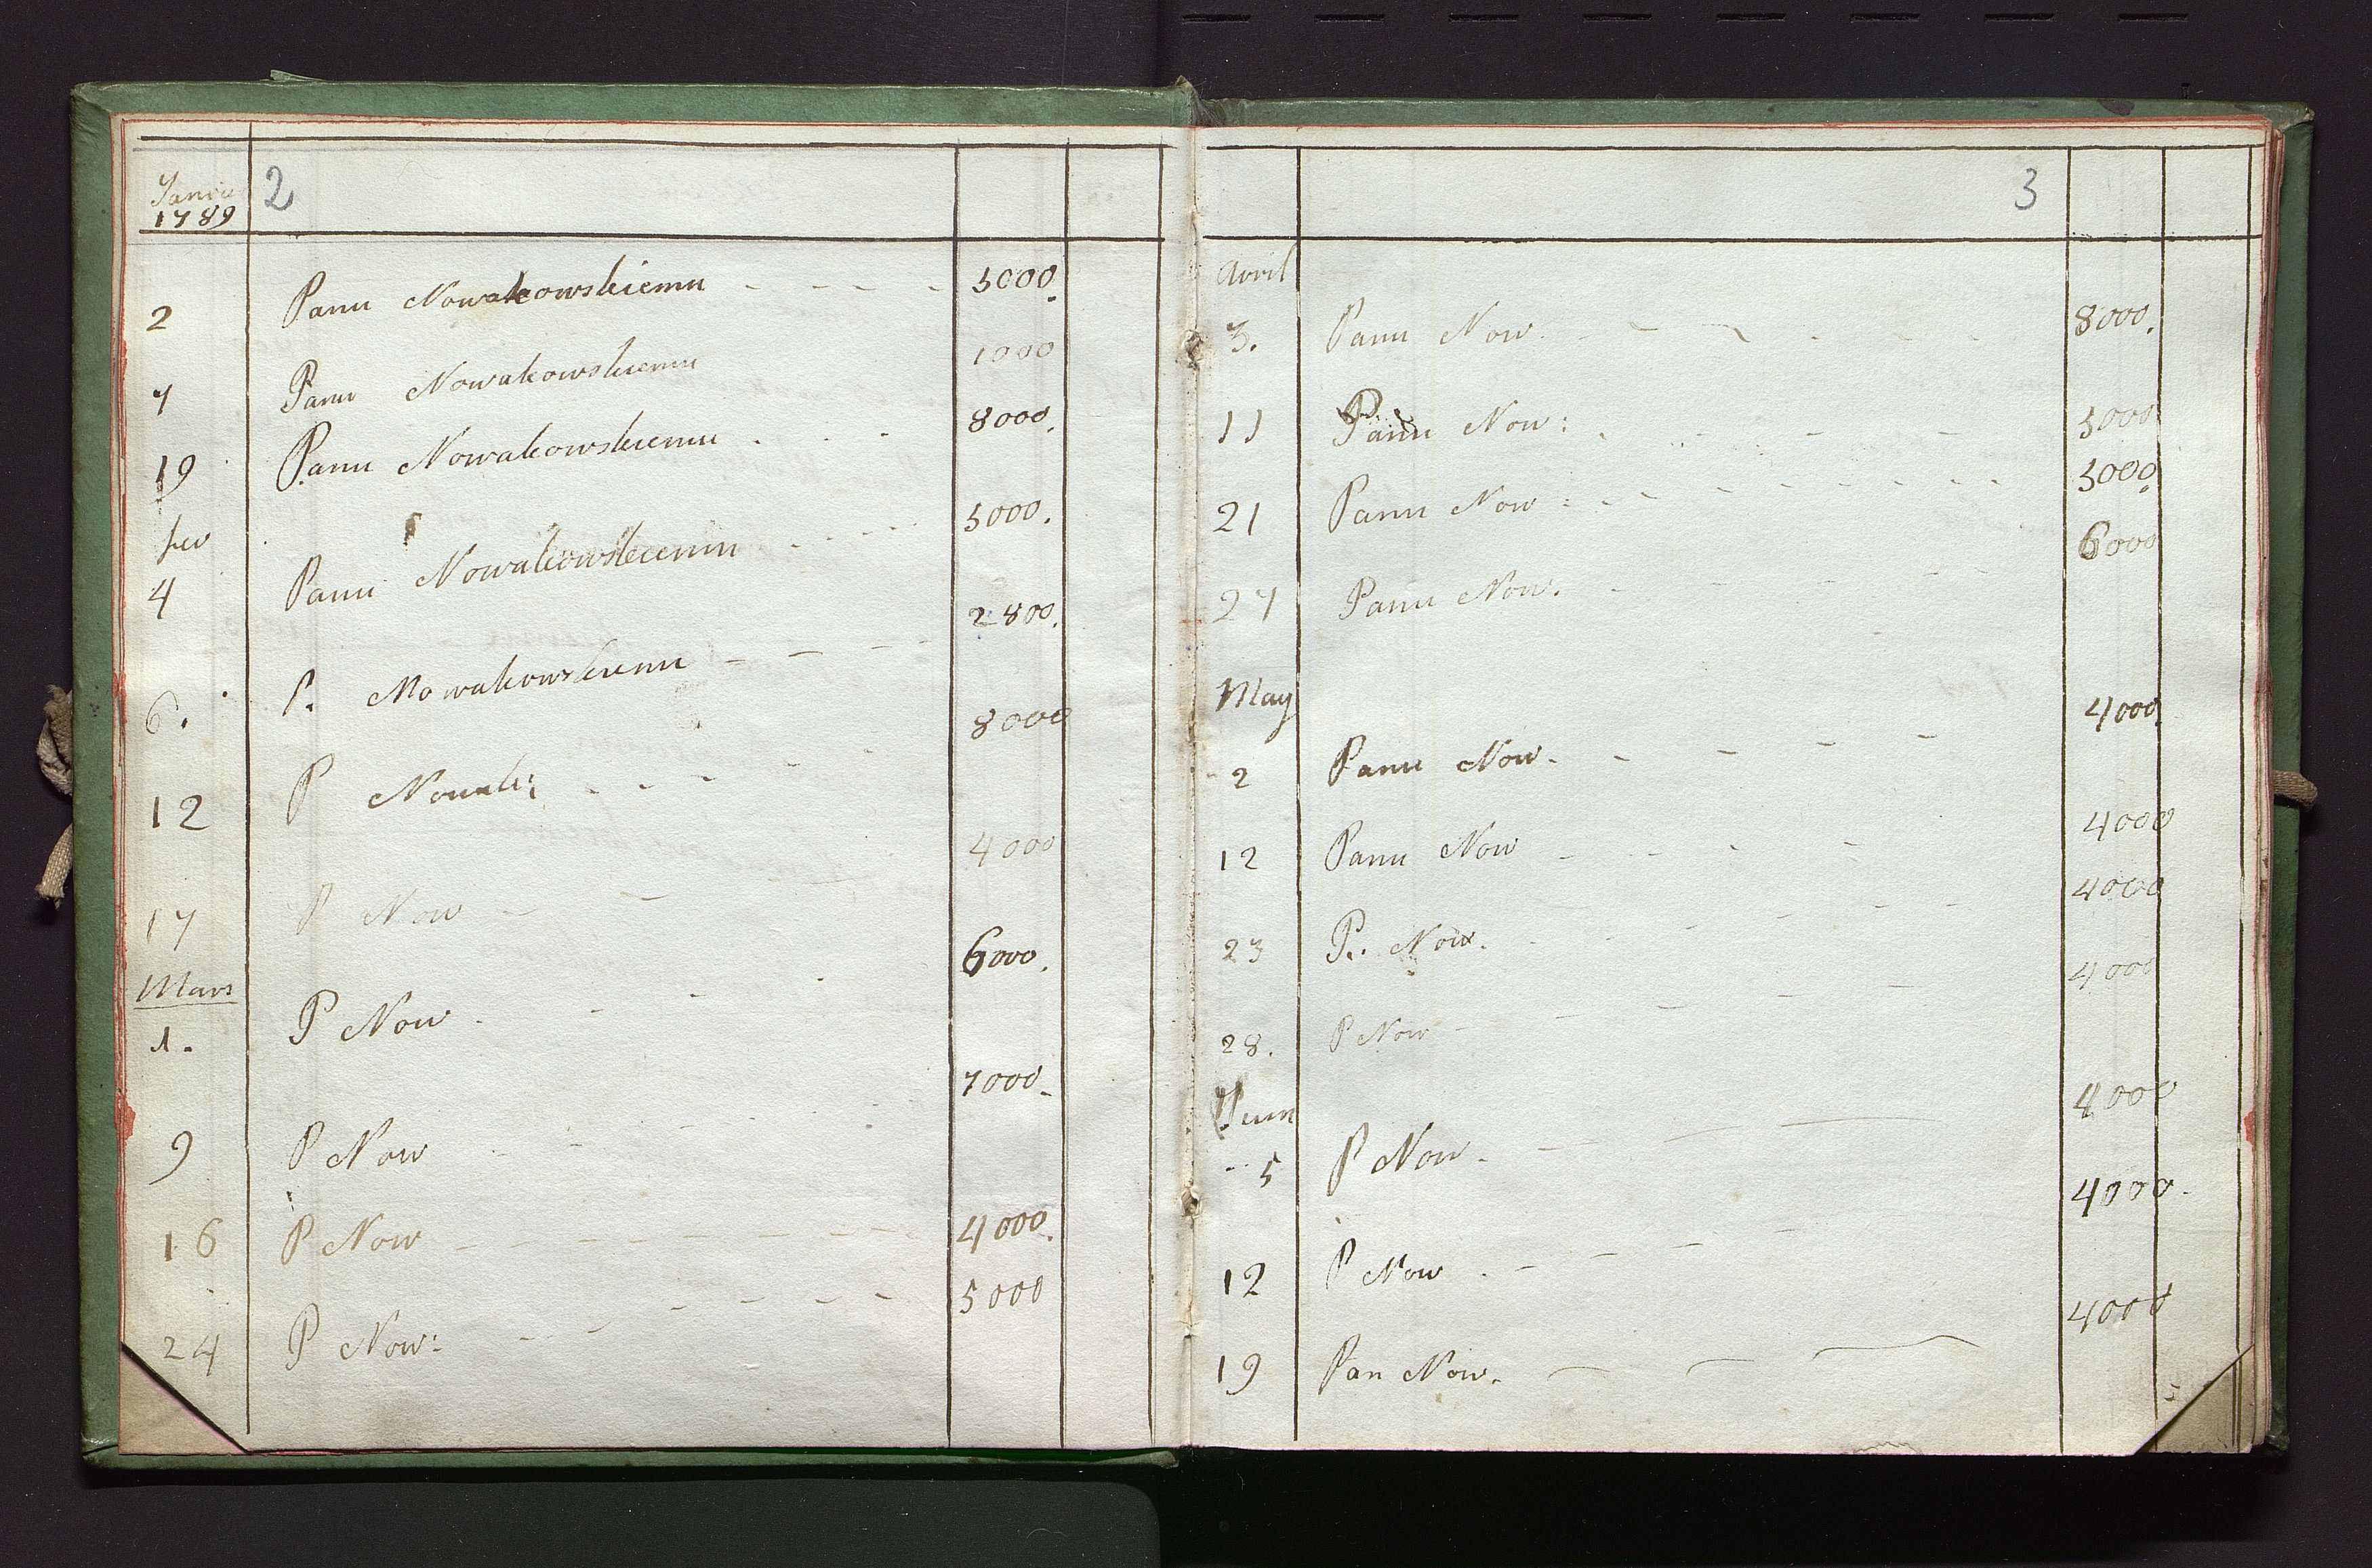 Janv
1789
2
2 Panu Nowakowskiemu - - - - 5000.
7 Panu Nowakowskiemu 1000
19 Panu Nowakowskiemu . - - 8000.
fev
4 Panu Nowakowskiemu - - - 5000.
6. P. Nowakowskiemu - - - - 2800.
12 P Nowak: - - - - - 8000
17 P Now - - - 4000
Mars
1. P Now - - - - 6000.
9 P Now - - - - 7000-
16 P Now - - - - - - - - 4000.
24 P Now: - - - - - - 5000
3
Avril
3. Panu Now. - - - - - 8000.
11 Panu Now: - - - - - 5000
21 Panu Now: - - - - - - - - 5000.
27 Panu Now. - - - - - 6000
May
2 Panu Now. - - - - 4000.
12 Panu Now - - - - 4000
23 P. Now. - - - - - 4000
28. P Now - - - - - 4000
Juin
5 P Now. - - - 4000
12 P Now . - - - 4000.
19 Pan Now. - - - 4000